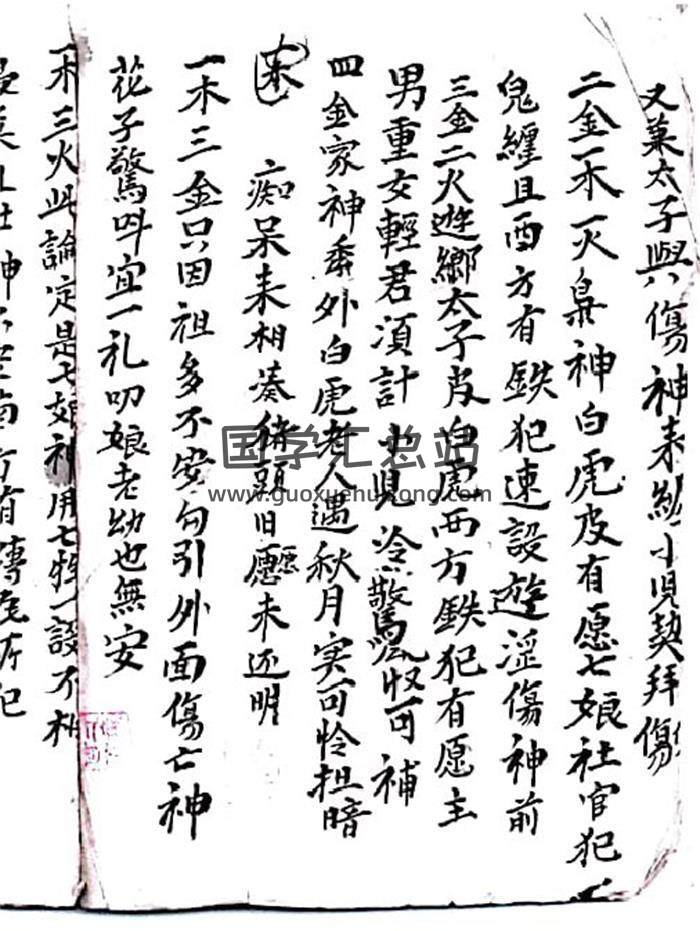 又兼太子與傷神来纏小児契拜傷
二金一木一火梟神白虎皮有愿七娘社官犯
鬼纏且酉方有鉄犯速設遊淫傷神前
三金二火遊鄉太子皮白虎西方鉄犯有愿主
男重女輕君須計 児冷驚 収可補
四金家神香外白虎老人遇秋月实可怜担暗
木 痴呆来相凑猪頭旧愿未还明
一木三金只因祖多不安勾引外面傷亡神
花子驚呌宜一礼叩娘老幼也無安
一木三火此論定是七娘神用七牲一設不
神 有磚
国学汇总站
www.guoxuehuizong.com